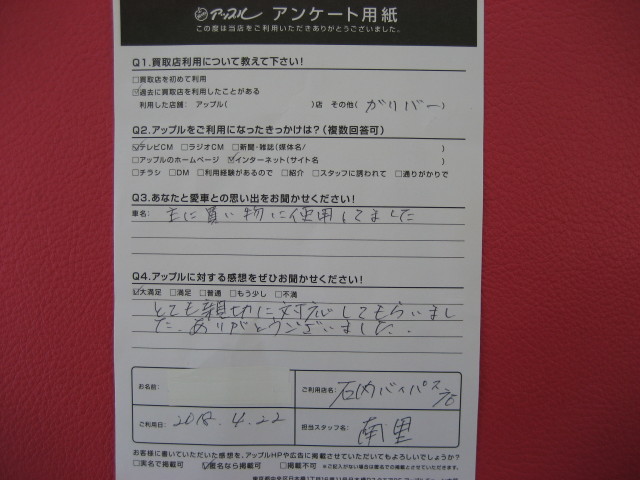 アップル アンケート用紙
この度は当店をご利用いただきありがとうございました。
Q1.買取店利用について教えて下さい!
□買取店を初めて利用
☑過去に買取店を利用したことがある
利用した店舗: アップル( )店 その他( ガリバー )
Q2.アップルをご利用になったきっかけは?(複数回答可)
☑テレビCM □ラジオCM □新聞・雑誌(媒体名/ )
□アップルのホームページ ☑インターネット(サイト名 )
□チラシ □DM □利用経験があるので □紹介 □スタッフに誘われて □通りがかりで
Q3.あなたと愛車との思い出をお聞かせください!
車名: 主に買い物に使用してました
Q4.アップルに対する感想をぜひお聞かせください!
☑大満足 □満足 □普通 □もう少し □不満
とても親切に対応してもらいまし
た。ありがとうございました。
お名前:
ご利用店名: 石内バイパス店
ご利用日: 2018.4.22
担当スタッフ名: 南里
お客様に書いていただいた感想を、アップルHPや広告に掲載させていただいてもよろしいでしょうか?
□実名で掲載可 ☑匿名なら掲載可 □掲載不可 ※ご記入がない場合は匿名での掲載とさせていただきます。